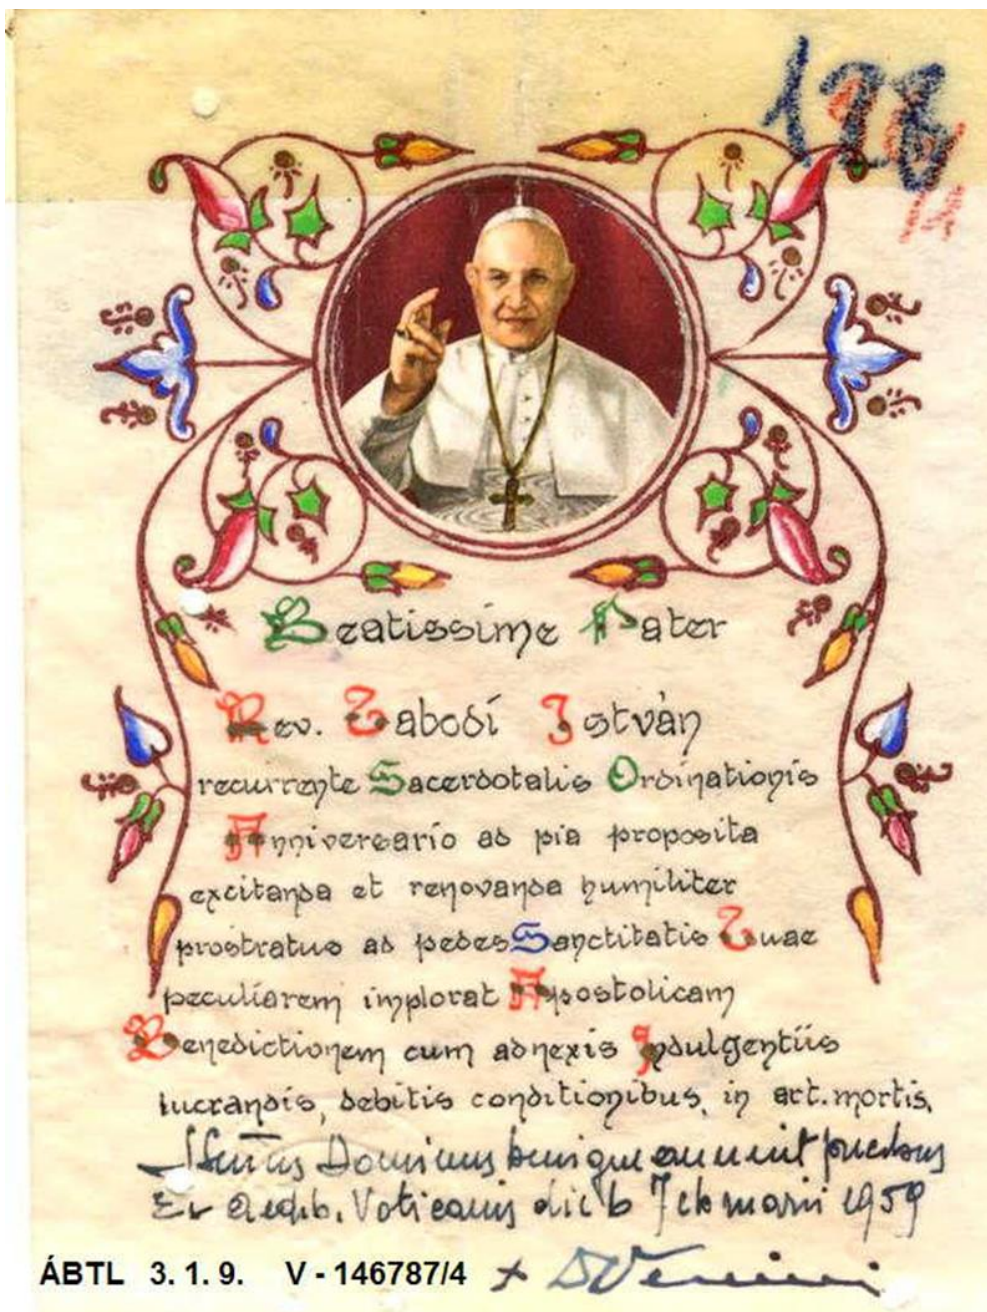 Beatissime Pater
Rev. Tabodi István
recurrente Sacerdotalis Ordinationis
Anniversario ad pia proposita
excitanda et renovanda humiliter
prostratus ad pedes Sanctitatis Tuae
peculiarem implorat Apostolicam
Benedictionem cum adnexis Indulgentiis
lucrandis, debitis conditionibus, in art. mortis.
Dominus benigne annuit precibus
Ex Aedib. Vaticanis die 6 1959
ÁBTL 3. 1. 9. V - 146787/4 +